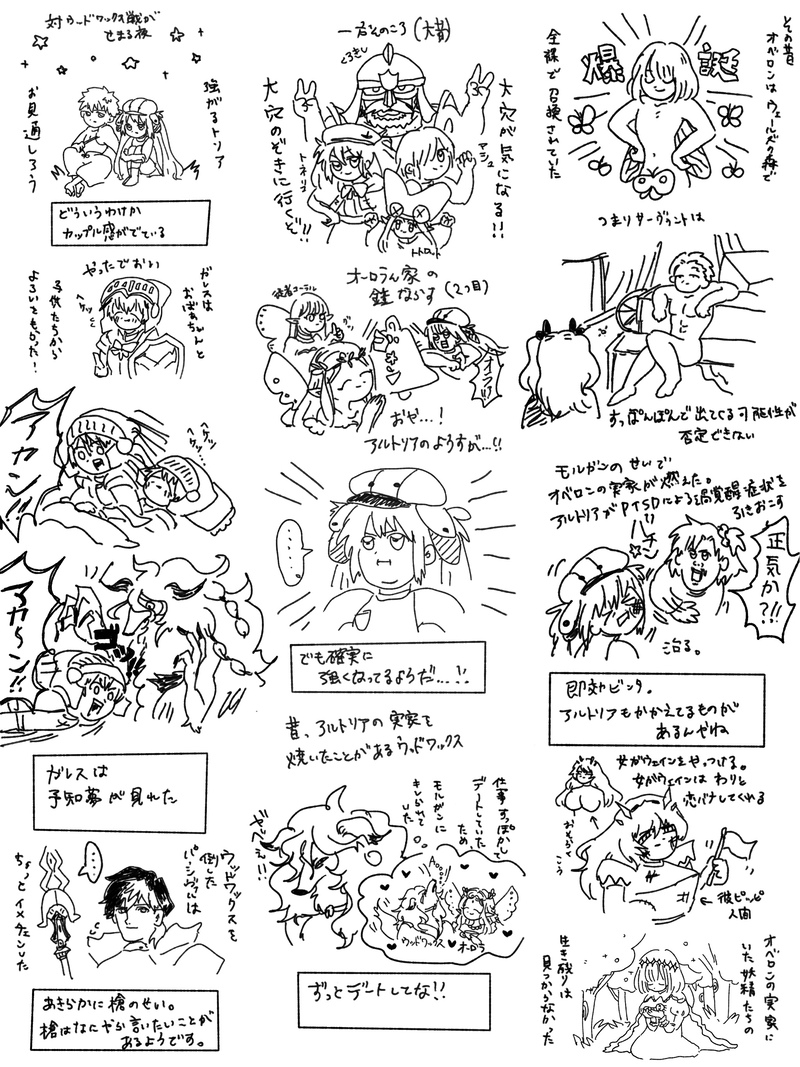 その昔
オベロンはウェールズの森で
全裸で召喚されていた
爆誕
つまりサーヴァントは
すっぽんぽんで出てくる可能性が
否定できない
モルガンのせいで
オベロンの実家が燃えた。
アルトリアがPTSDによる過覚醒症状を
引きおこす
バチン
正気か?!!
治る。
即効ビンタ。
アルトリアもかかえてるものが
あるんやね
女がウェインをやっつける。
女がウェインはわりと
恋バナしてくれる
おもらく
こう
←後ピッピ
人間
オベロンの実家に
いた妖精たちの
生き残りは
見つからなかった
一君さんのころ(大昔)
くろきし
大穴が気になる!!
マシュ
トネリコ
トトロット
大穴のぞきに行くぞ!!
オーロラん家の
鐘ならす(2つ目)
従者コーラル
おや…!
アルトリアのようすが…!!
・・・・
でも確実に
強くなってるようだ…!!
昔、アルトリアの実家を
焼いたことがあるウッドワックス
仕事すっぽかして
デートしていた
ため
モルガンに
キレられて
いた
やべぇ!!
ウッドワックス
オーロラ
ずっとデートしてな!!
対ウッドワックス戦が
せまる夜
強がるトリア
お見通しろう
どういうわけか
カップル感がでている
ガレスは
おばあちゃんと
やったでおい
ヘケッ
子供たちから
よろいをもらった!
アカン!!
ヘケッ
ヘケッ…
アカーン!!
ガレスは
予知夢が見れた
ウッドワックスを
倒した
パーシヴァルは
・・・
ちょっとイメチェンした
あきらかに槍のせい。
槍はなにやら言いたいことが
あるようです。